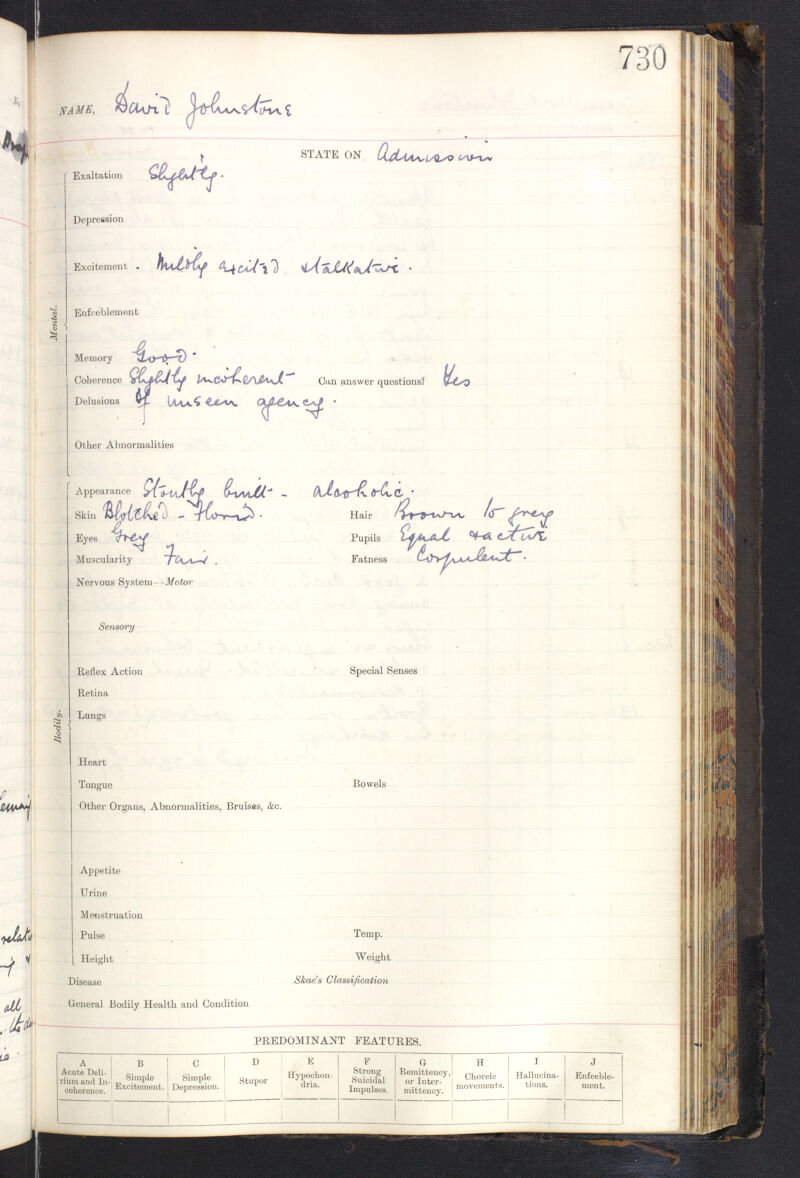 730
NAME, David Johnstone
STATE ON Admission
Mental.
Exaltation Slightly.
Depression
Excitement. Mildly excited & talkative.
Enfeeblement
Memory Good.
Coherence Slightly incoherent Can answer questions? Yes
Delusions Of unseen agency.
Other Abnormalities
Bodily.
Appearance Stoutly built - alcoholic.
Skin Blotched - Florid. Hair Brown to grey
Eyes Grey Pupils Equal & active
Muscularity Fair. Fatness Corpulent.
Nervous System—Motor
Sensory
Reflex Action Special Senses
Retina
Lungs
Heart
Tongue Bowels
Other Organs, Abnormalities, Bruises, &c.
Appetite
Urine
Menstruation
Pulse Temp.
Height Weight
Disease Skae's Classification
General Bodily Health and Condition
PREDOMINANT FEATURES.
A Acute Delirium and Incoherence.
B Simple Excitement.
C Simple Depression.
D Stupor
E Hypochondria.
F Strong Suicidal Impulses.
G Remittency, or Intermittency.
H Choreic movements.
I Hallucinations.
J Enfeeblement.